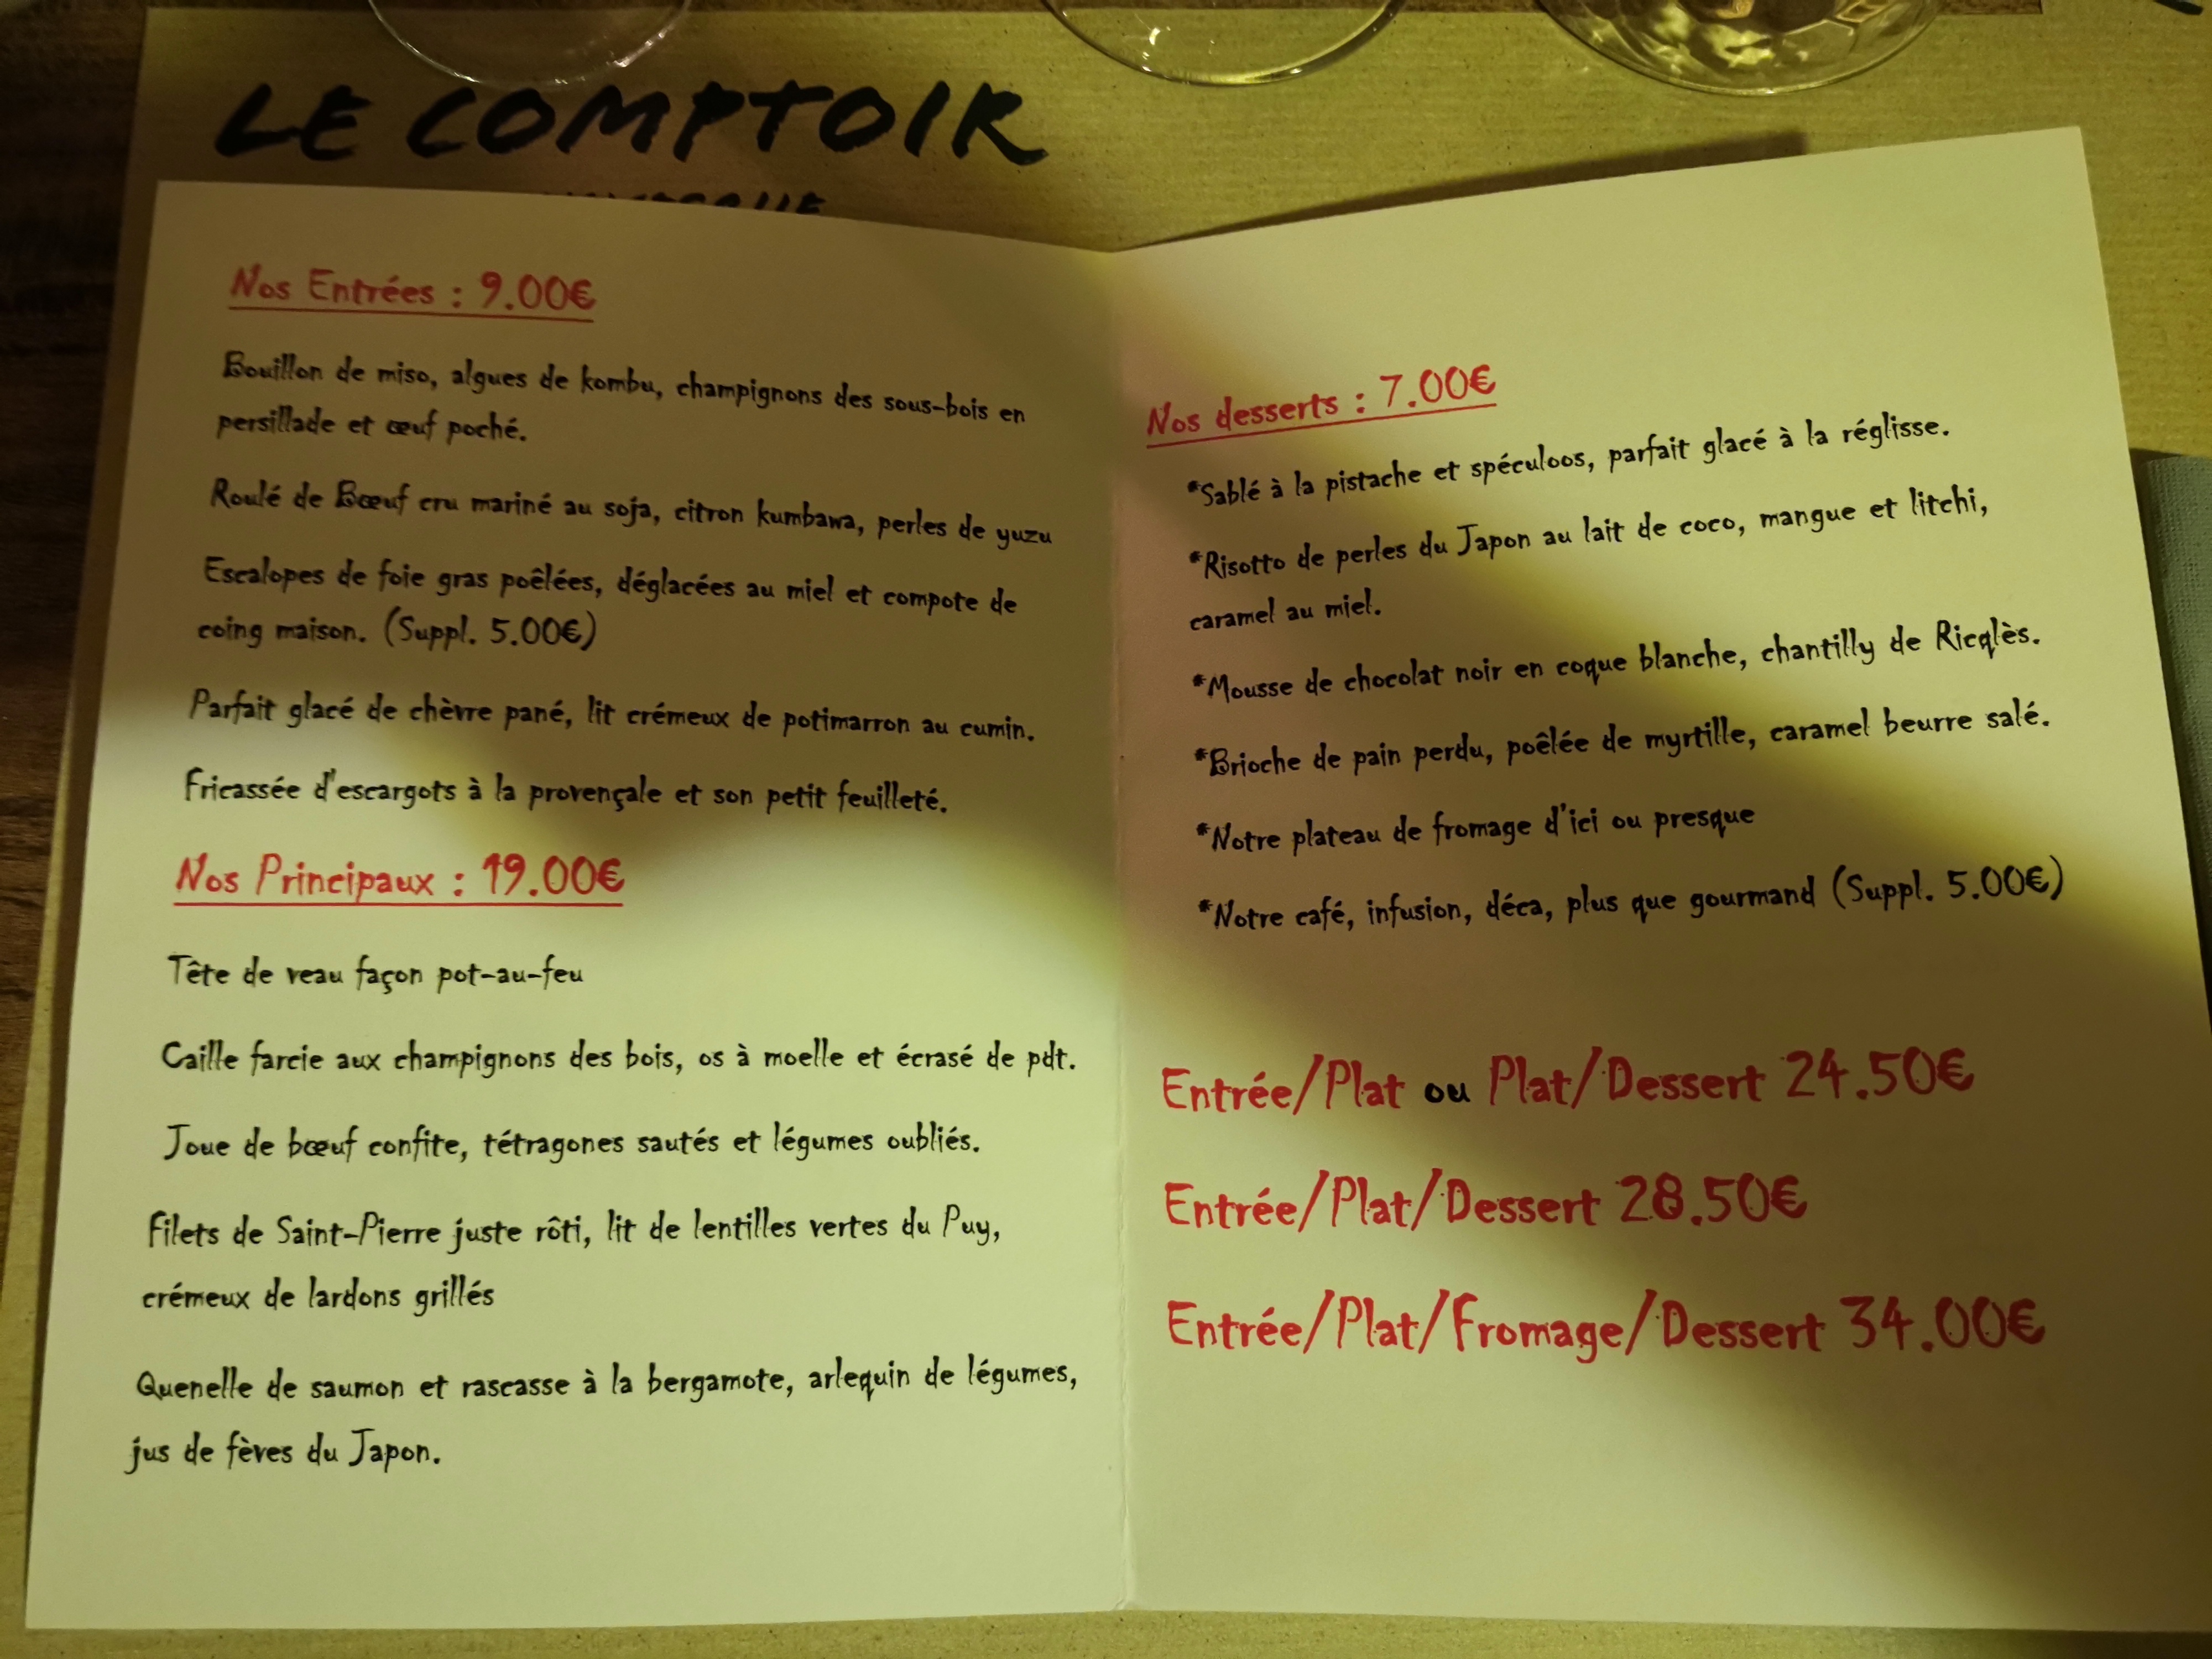 LE COMPTOIR
Nos Entrées : 9.00€
Bouillon de miso, algues de kombu, champignons des sous-bois en
persillade et œuf poché.
Roulé de Bœuf cru mariné au soja, citron kumbawa, perles de yuzu
Escalopes de foie gras poêlées, déglacées au miel et compote de
coing maison. (Suppl. 5.00€)
Parfait glacé de chèvre pané, lit crémeux de potimarron au cumin.
Fricassée d'escargots à la provençale et son petit feuilleté.
Nos Principaux : 19.00€
Tête de veau façon pot-au-feu
Caille farcie aux champignons des bois, os à moelle et écrasé de pdt.
Joue de bœuf confite, tétragones sautés et légumes oubliés.
Filets de Saint-Pierre juste rôti, lit de lentilles vertes du Puy,
crémeux de lardons grillés
Quenelle de saumon et rascasse à la bergamote, arlequin de légumes,
jus de fèves du Japon.
Nos desserts : 7.00€
*Sablé à la pistache et spéculoos, parfait glacé à la réglisse.
*Risotto de perles du Japon au lait de coco, mangue et litchi,
caramel au miel.
*Mousse de chocolat noir en coque blanche, chantilly de Ricqlès.
*Brioche de pain perdu, poêlée de myrtille, caramel beurre salé.
*Notre plateau de fromage d'ici ou presque
*Notre café, infusion, déca, plus que gourmand (Suppl. 5.00€)
Entrée/Plat ou Plat/Dessert 24.50€
Entrée/Plat/Dessert 28.50€
Entrée/Plat/Fromage/Dessert 34.00€